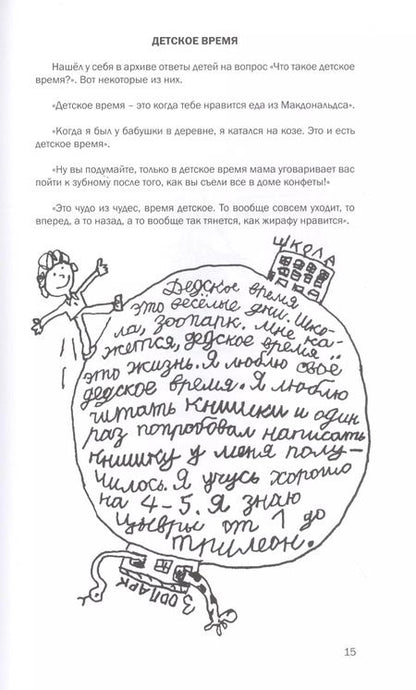 ДЕТСКОЕ ВРЕМЯ
Нашёл у себя в архиве ответы детей на вопрос «Что такое детское
время?». Вот некоторые из них.
«Детское время – это когда тебе нравится еда из Макдональдса».
«Когда я был у бабушки в деревне, я катался на козе. Это и есть
детское время».
«Ну вы подумайте, только в детское время мама уговаривает вас
пойти к зубному после того, как вы съели все в доме конфеты!»
«Это чудо из чудес, время детское. То вообще совсем уходит, то
вперед, а то назад, а то вообще так тянется, как жирафу нравится».
ШКОЛА
Дедское время
это весёлые дни. Шко-
ла, зоопарк. Мне ка-
жется, дедское время
это жизнь. Я люблю своё
дедское время. Я люблю
читать книшки и один
раз попробовал написать
книшку у меня полу-
чилось. Я учусь хорошо
на 4-5. Я знаю
цыыфры от 1 до
трилеон.
ЗООПАРК
15